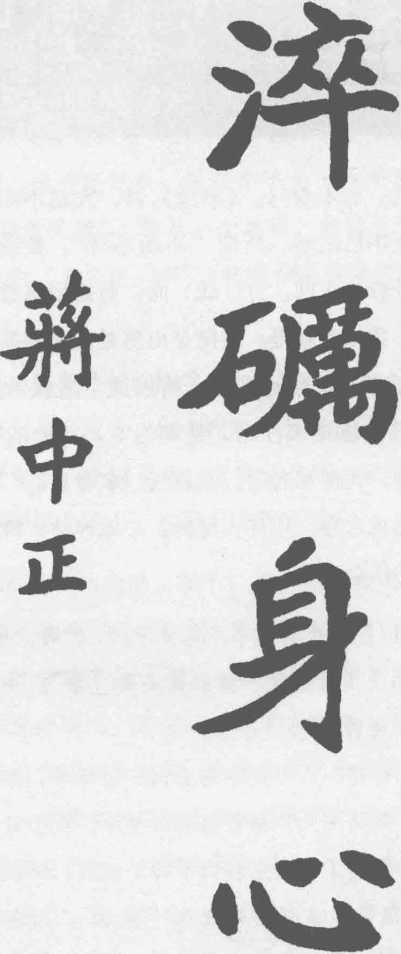 淬礪身心
蔣中正